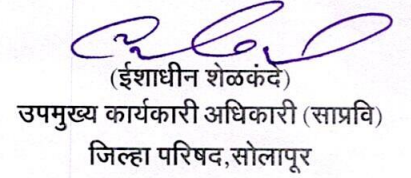 (ईशाधीन शेळकंदे)
उपमुख्य कार्यकारी अधिकारी (साप्रवि)
जिल्हा परिषद,सोलापूर